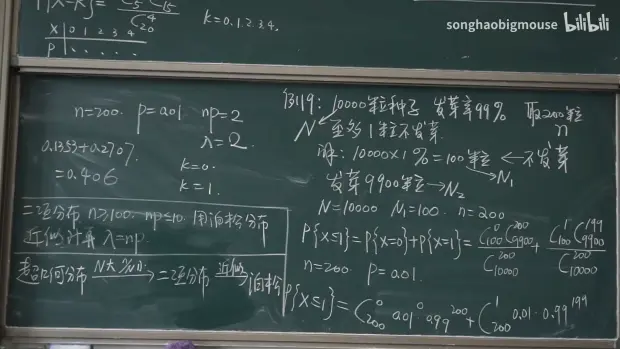 songhaobigmouse bilibili
P{X=k}= C₅ C₁₅ / C₂₀⁴ k=0.1.2.3.4.
X 0 1 2 3 4
P
n=200. p=0.01 np=2
λ=2
0.1353+0.2707
=0.406
k=0.
k=1.
二项分布 n≥100. np≤10. 用泊松分布
近似计算 λ=np.
超几何分布 N大 n小 → 二项分布 近似→ 泊松
例19: 10000粒种子 发芽率99% 取200粒
N 至多1粒不发芽. n
解: 10000×1%=100粒 ← 不发芽
→N₁
发芽9900粒→N₂
N=10000 N₁=100. n=200
P{X≤1}=P{X=0}+P{X=1}= C₁₀₀⁰ C₉₉₀₀²⁰⁰ / C₁₀₀₀₀²⁰⁰ + C₁₀₀¹ C₉₉₀₀¹⁹⁹ / C₁₀₀₀₀²⁰⁰
n=200 p=0.01.
P{X≤1}= C₂₀₀⁰ 0.01⁰ 0.99²⁰⁰ + C₂₀₀¹ 0.01·0.99¹⁹⁹